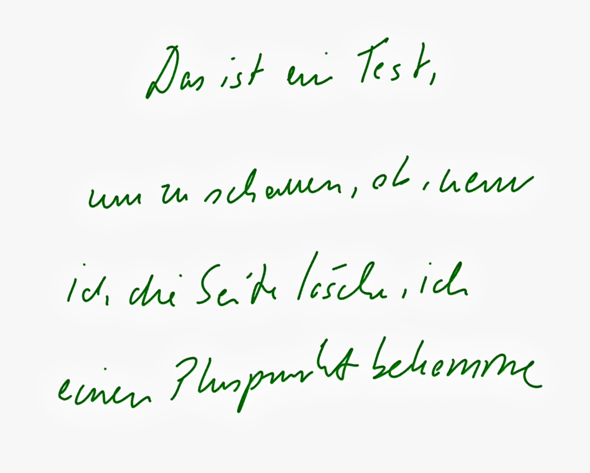 Das ist ein Test,
um zu schauen, ob, wenn
ich die Seite lösche, ich
einen Pluspunkt bekomme